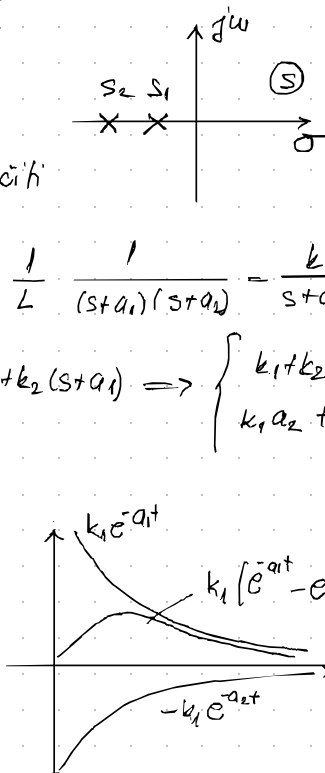 jω
s₂ s₁
Ⓢ
σ
čiћ
1/L 1/((s+a₁)(s+a₂)) = k/(s+a
+k₂(s+a₁) ⇒ { k₁+k₂
k₁a₂ +
k₁e^(-a₁t)
k₁[e^(-a₁t) - e
-k₁e^(-a₂t)